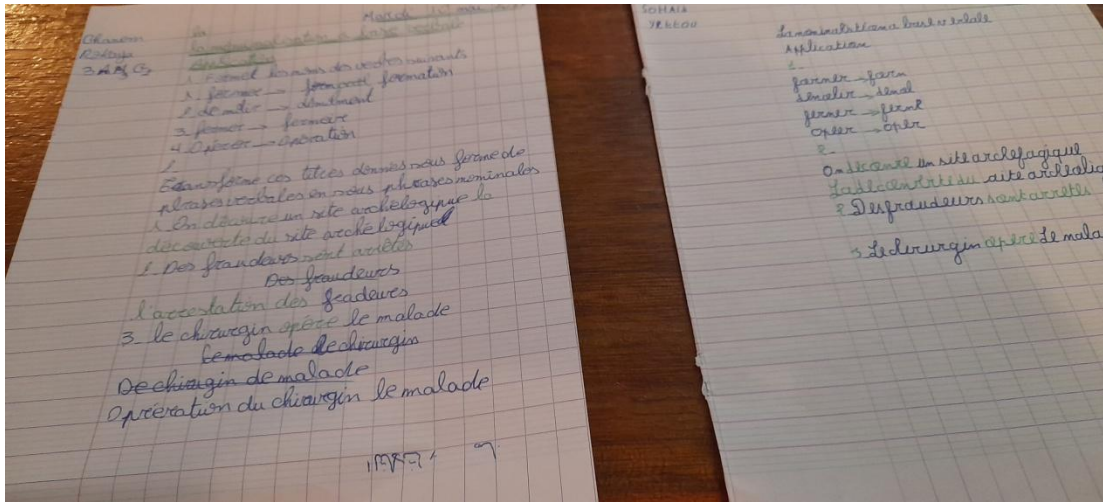 Mardi
Ghanem
Rabay
la
la nominalisation à base verbale
3 AM G2
Application
1. Formet les noms des verbes suivants
1. former → formation
2. demolir →
3. fermer → fermeure
4. Opérer → Opération
2.
ces titres donnés sous forme de
phrases verbales en sous phrases nominales
1. On découvre un site archélogique la
découverte du site archélogique
2. Des fraudeurs sont arrêtés
Des fraudeurs
l'arrestation des fradeurs
3_ le chirurgin opére le malade
Le malade de chirurgin
De chirugin de malade
Oprération du chirurgin le malade
SOHAIB
La nominalistion a base verbale
Application
1_
farmer → farm
fermer → ferme
opeer → oper
2_
On un site
site
2 Des fraudeurs sont arretés
3 Le chrurgin opére le mala